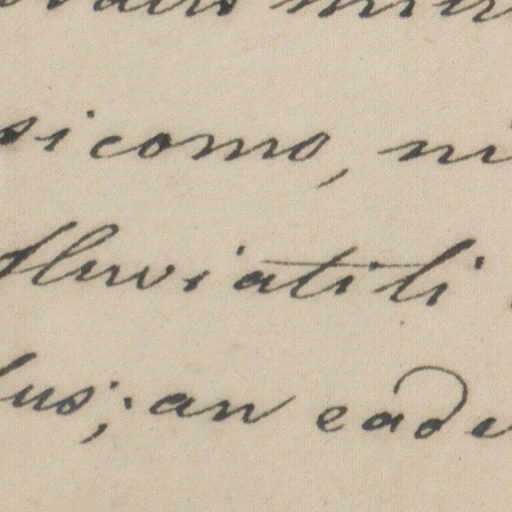 sicomo, ni
fluviatili
lus; an eade